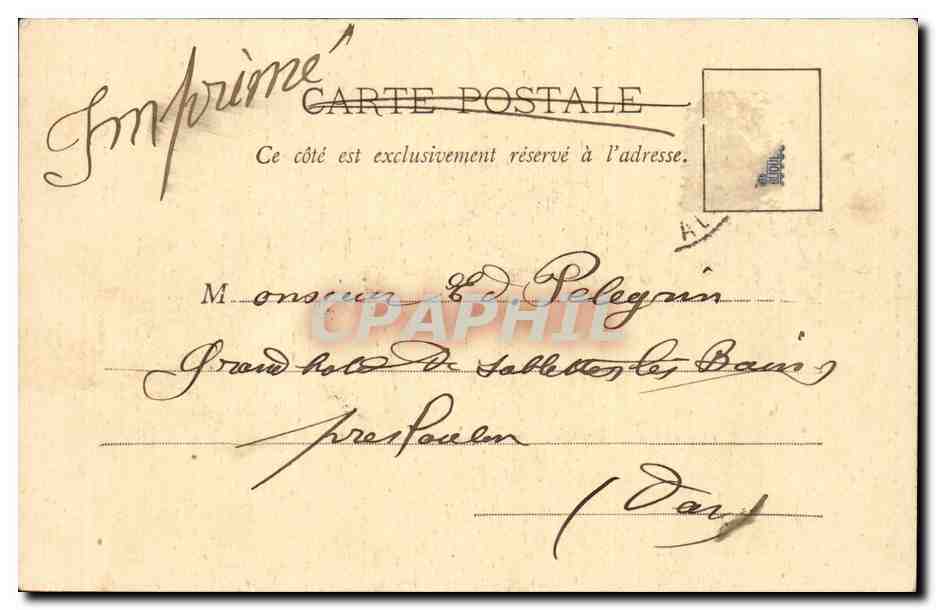 Imprimé
CARTE POSTALE
Ce côté est exclusivement réservé à l'adresse.
AU
Monsieur Ed Pelegrin
CPAPHIL
Grand hotel de Sablettes les Bains
pres Toulon
(Var)